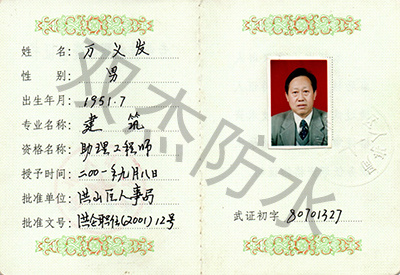 姓 名: 万义发
性 别: 男
出生年月: 1951.7
专业名称: 建筑
资格名称: 助理工程师
授予时间: 二00一年九月八日
批准单位: 洪山区人事局
批准文号: 洪区职位(2001)12号
武证初字 80701327
双杰防水